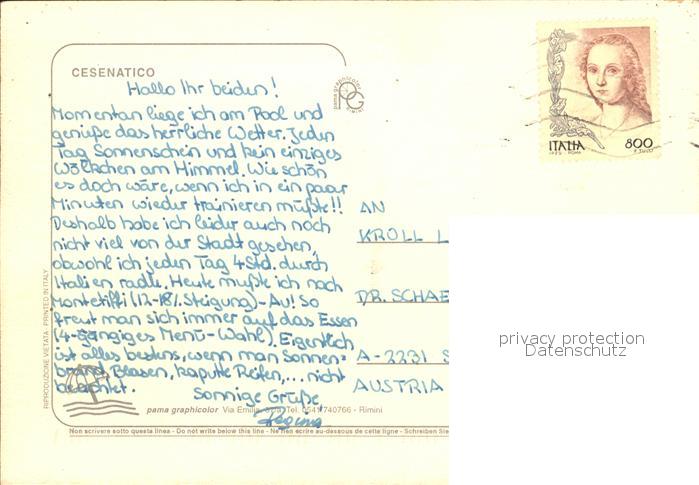 CESENATICO
Hallo Ihr beiden!
Momentan liege ich am Pool und
genieße das herrliche Wetter. Jeden
Tag Sonnenschein und kein einziges
Wölkchen am Himmel. Wie schön
es doch wäre, wenn ich in ein paar
Minuten wieder trainieren müßte!!
Deshalb habe ich leider auch noch
nicht viel von der Stadt gesehen,
obwohl ich jeden Tag 4 Std. durch
Italien radle. Heute mußte ich nach
Montetiffi (12-18% Steigung) - Au! So
freut man sich immer auf das Essen
(4-gängiges Menü-Wahl). Eigentlich
ist alles bestens, wenn man Sonnen=
brand, Blasen, kaputte Reifen,... nicht
beachtet.
Sonnige Grüße
Regina
pama graphicolor
PG
RIMINI
ITALIA 800
AN
KROLL L
DR. SCHAE
A-2231 S
AUSTRIA
privacy protection
Datenschutz
RIPRODUZIONE VIETATA - PRINTED IN ITALY
pama graphicolor Via Emilia, Tel. 0541/740766 - Rimini
Non scrivere sotto questa linea - Do not write below this line - Ne rien écrire au-dessous de cette ligne - Schreiben Sie